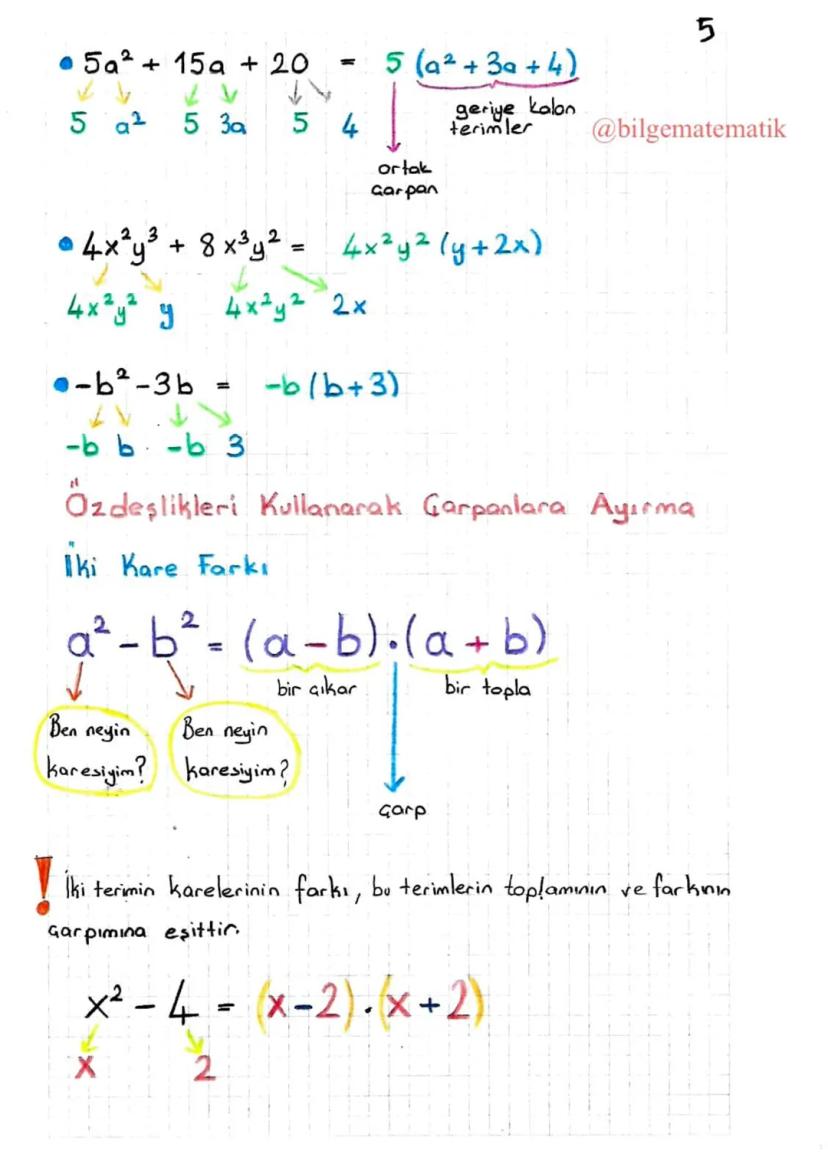 5
• 5a² + 15a + 20 = 5 (a² + 3a + 4)
5 a² 5 3a 5 4
geriye kalan
terimler
@bilgematematik
ortak
çarpan
• 4x²y³ + 8x³y² = 4x²y² (y + 2x)
4x²y² y 4x²y² 2x
• -b² - 3b = -b (b + 3)
-b b -b 3
Özdeşlikleri Kullanarak Çarpanlara Ayırma
İki Kare Farkı
a² - b² = (a - b) . (a + b)
bir çıkar bir topla
Ben neyin
karesiyim?
Ben neyin
karesiyim?
çarp
! İki terimin karelerinin farkı, bu terimlerin toplamının ve farkının
çarpımına eşittir.
x² - 4 = (x - 2) . (x + 2)
x 2